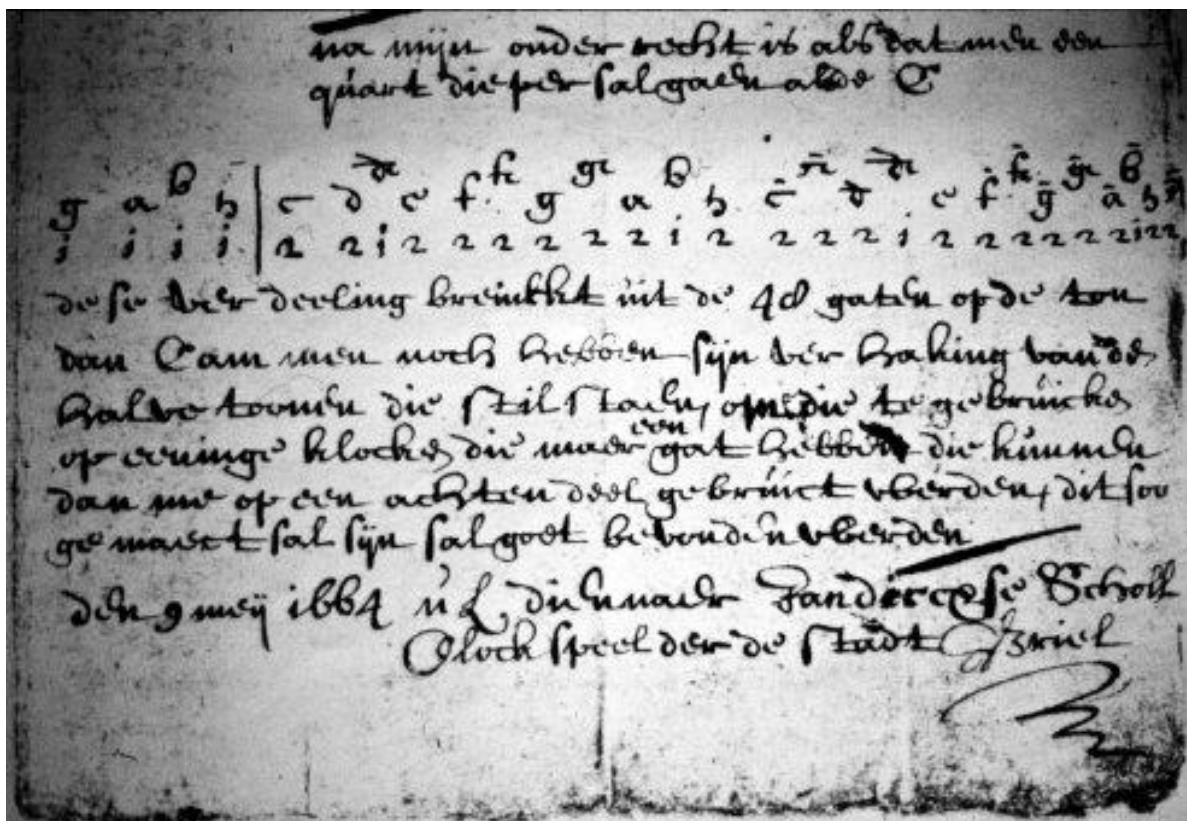 na mijn onder recht is als dat men een
quart dieper sal gaen als de C
g a b h | c d e f g a b h c d e f g a h
1 1 1 1 2 2 1 2 2 2 2 2 2 1 2 2 2 2 1 2 2 2 2 2 2 1 2 2
dese ver deeling breinkt uit de 48 gaten op de ton
dan Cam men noch hebben sijn ver haking van de
halve toonen die stil staen, om die te gebruicken
op eeninge klocken die maer een gat hebben die kunnen
dan me op een achten deel gebruict werden, dit soo
ge maect sal sijn sal goet bevonden werden
den 9 meij 1664 dienaer Jandircxse Scholl
Clock speelder de stadt Briel